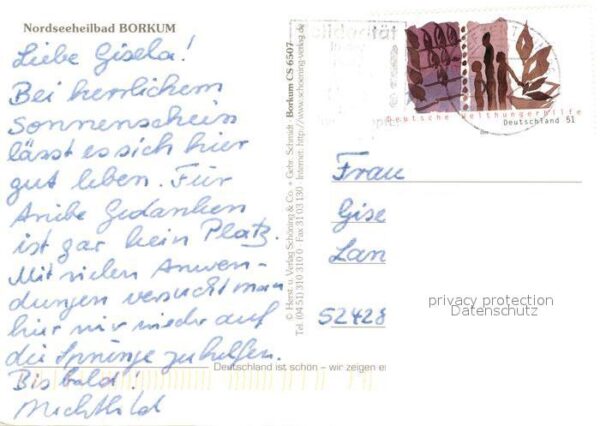 Nordseeheilbad BORKUM
Liebe Gisela!
Bei herrlichem
Sonnenschein
lässt es sich hier
gut leben. Für
trübe Gedanken
ist gar kein Platz.
Mit vielen Anwen-
dungen versucht man
hier mir wieder auf
die Sprünge zu helfen.
Bis bald!
Mechthild
© Herst. u. Verlag Schöning & Co. + Gebr. Schmidt · Borkum CS 6507
Tel. (04 51) 310 310 0 · Fax 31 03 130 · Internet: http://www.schoening-verlag.de
Deutsche Welthungerhilfe
Deutschland 51
Frau
Gise
Lan
52428
privacy protection
Datenschutz
Deutschland ist schön – wir zeigen es